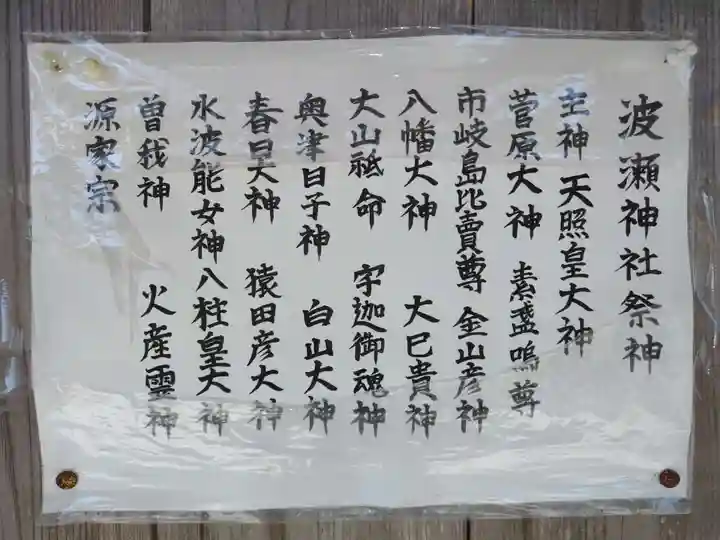 波瀬神社祭神
主神 天照皇大神
菅原大神 素盞嗚尊
市岐島比賣尊 金山彦神
八幡大神 大巳貴神
大山祗命 宇迦御魂神
奥津日子神 白山大神
春日大神 猿田彦大神
水波能女神 八柱皇大神
曽我神 火産霊神
源家宗